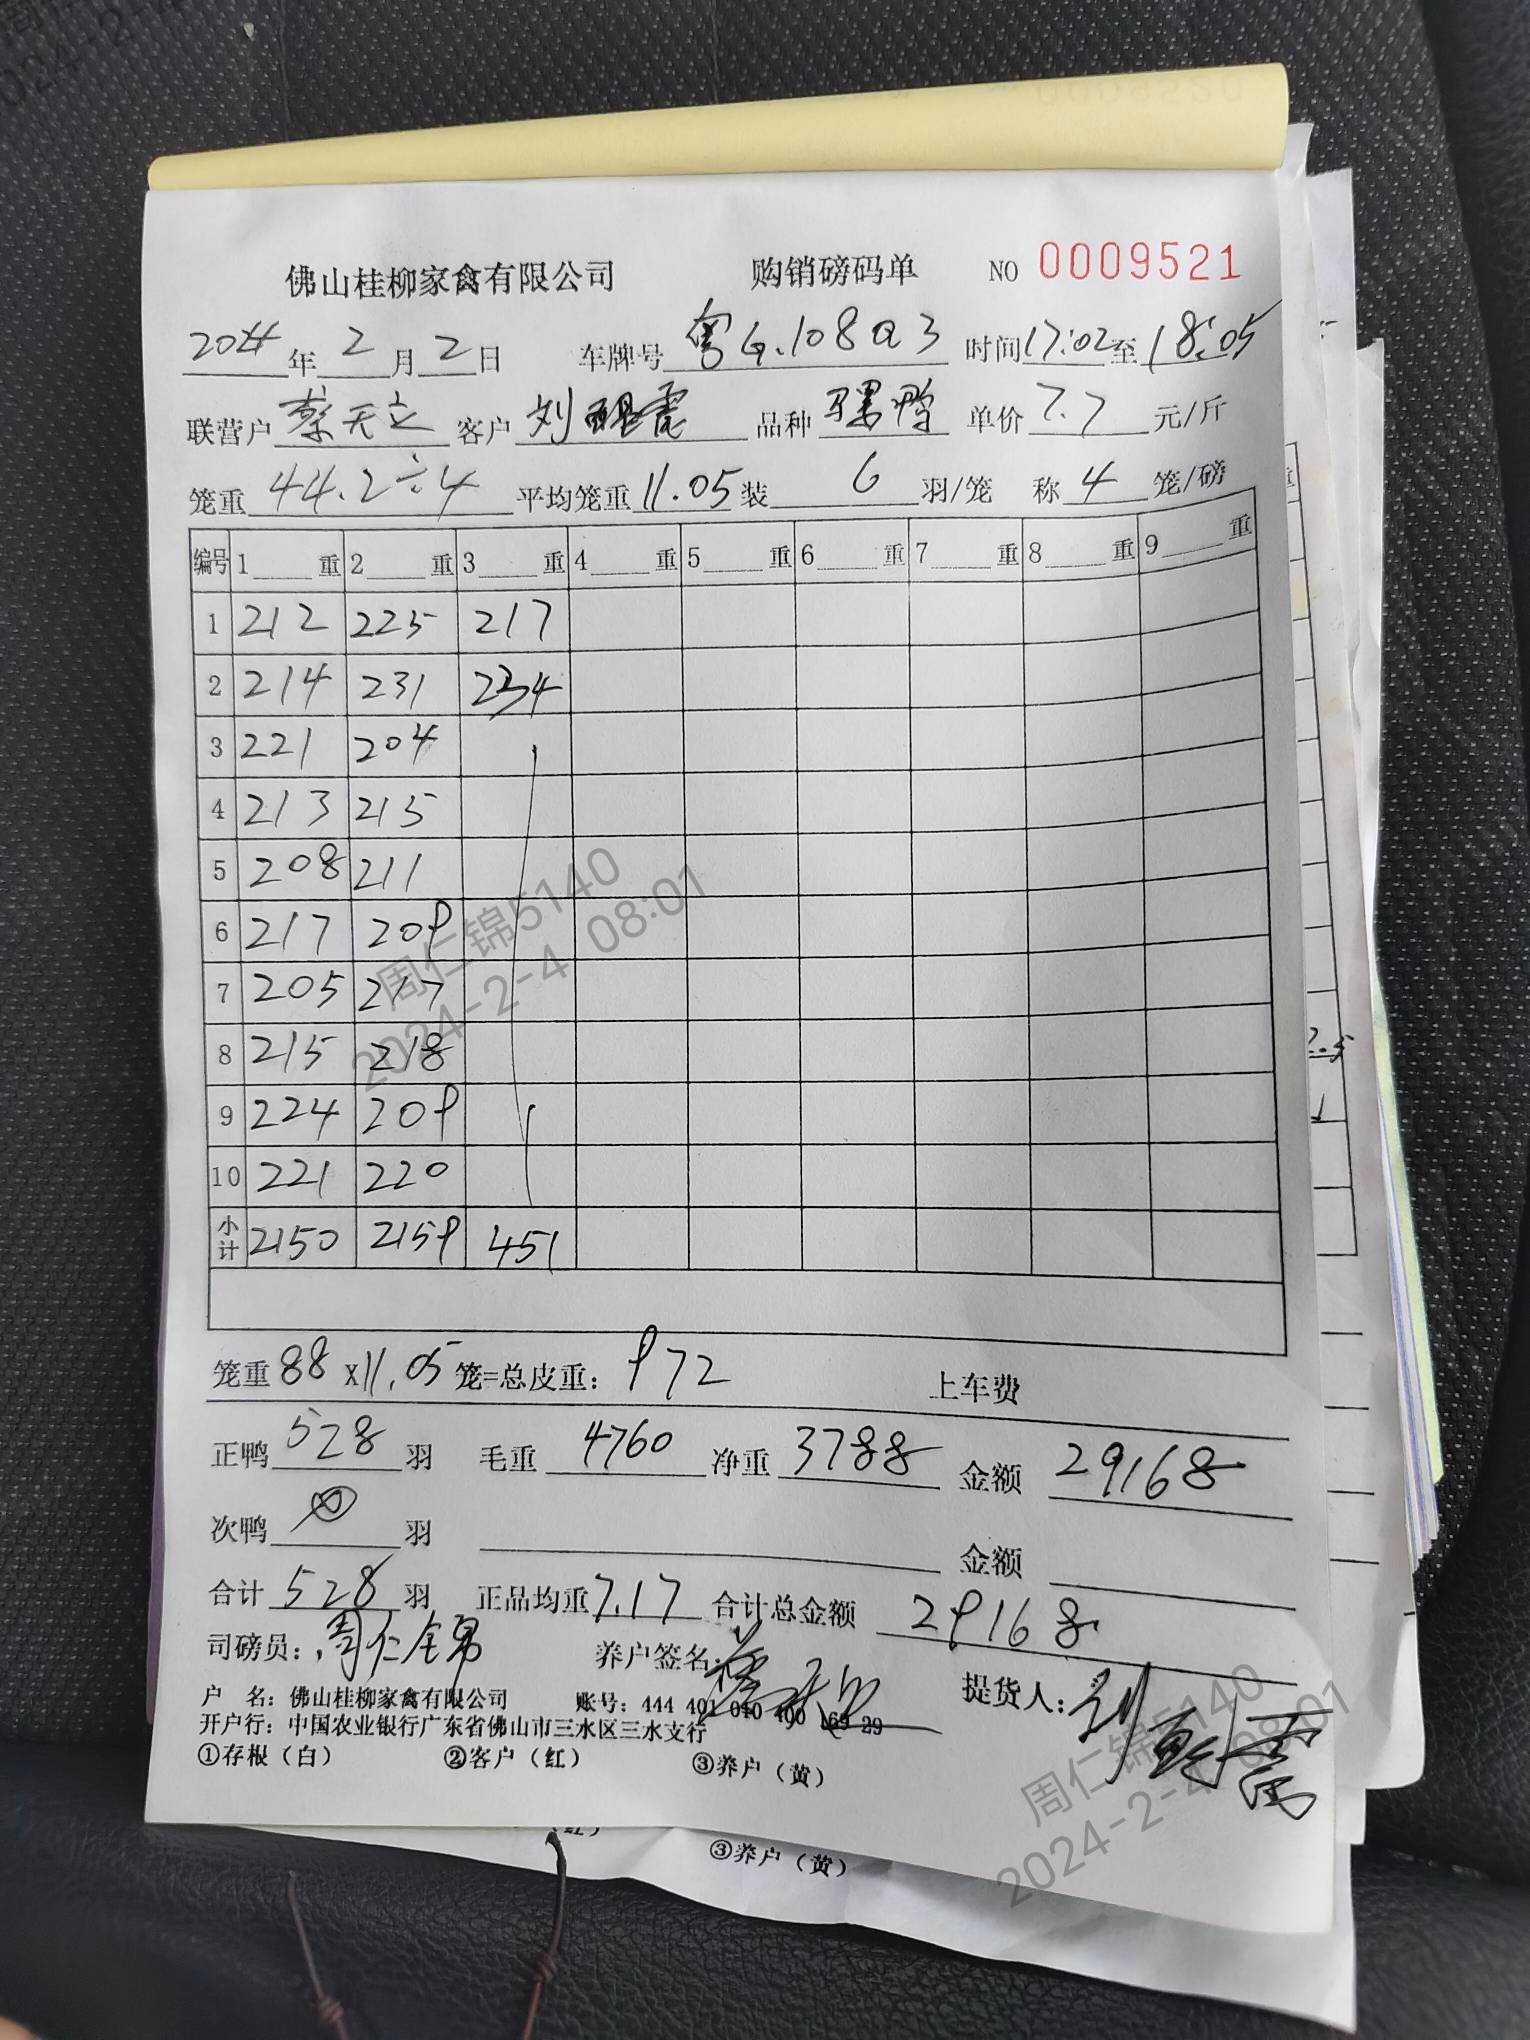 佛山桂柳家禽有限公司 购销磅码单 NO 0009521
2024年2月2日 车牌号 粤G.108Q3 时间17:02至18:05
联营户 蔡天立 客户 刘 品种 骡鸭 单价 7.7 元/斤
笼重 44.2÷4 平均笼重 11.05 装 6 羽/笼 称 4 笼/磅
编号 1 重 2 重 3 重 4 重 5 重 6 重 7 重 8 重 9 重
1 212 225 217
2 214 231 234
3 221 204
4 213 215
5 208 211
6 217 209
7 205 217
8 215 218
9 224 209
10 221 220
小计 2150 2159 451
笼重 88 X 11.05 笼=总皮重: 972 上车费
正鸭 528 羽 毛重 4760 净重 3788 金额 29168
次鸭 羽 金额
合计 528 羽 正品均重 7.17 合计总金额 29168
司磅员: 周仁锦 养户签名: 提货人: 刘
户 名: 佛山桂柳家禽有限公司 账号: 444 401 040 400 169 29
开户行: 中国农业银行广东省佛山市三水区三水支行
①存根(白) ②客户(红) ③养户(黄)
③养户(黄)
周仁锦5140
2024-2-4 08:01
周仁锦5140
2024-2-4 08:01